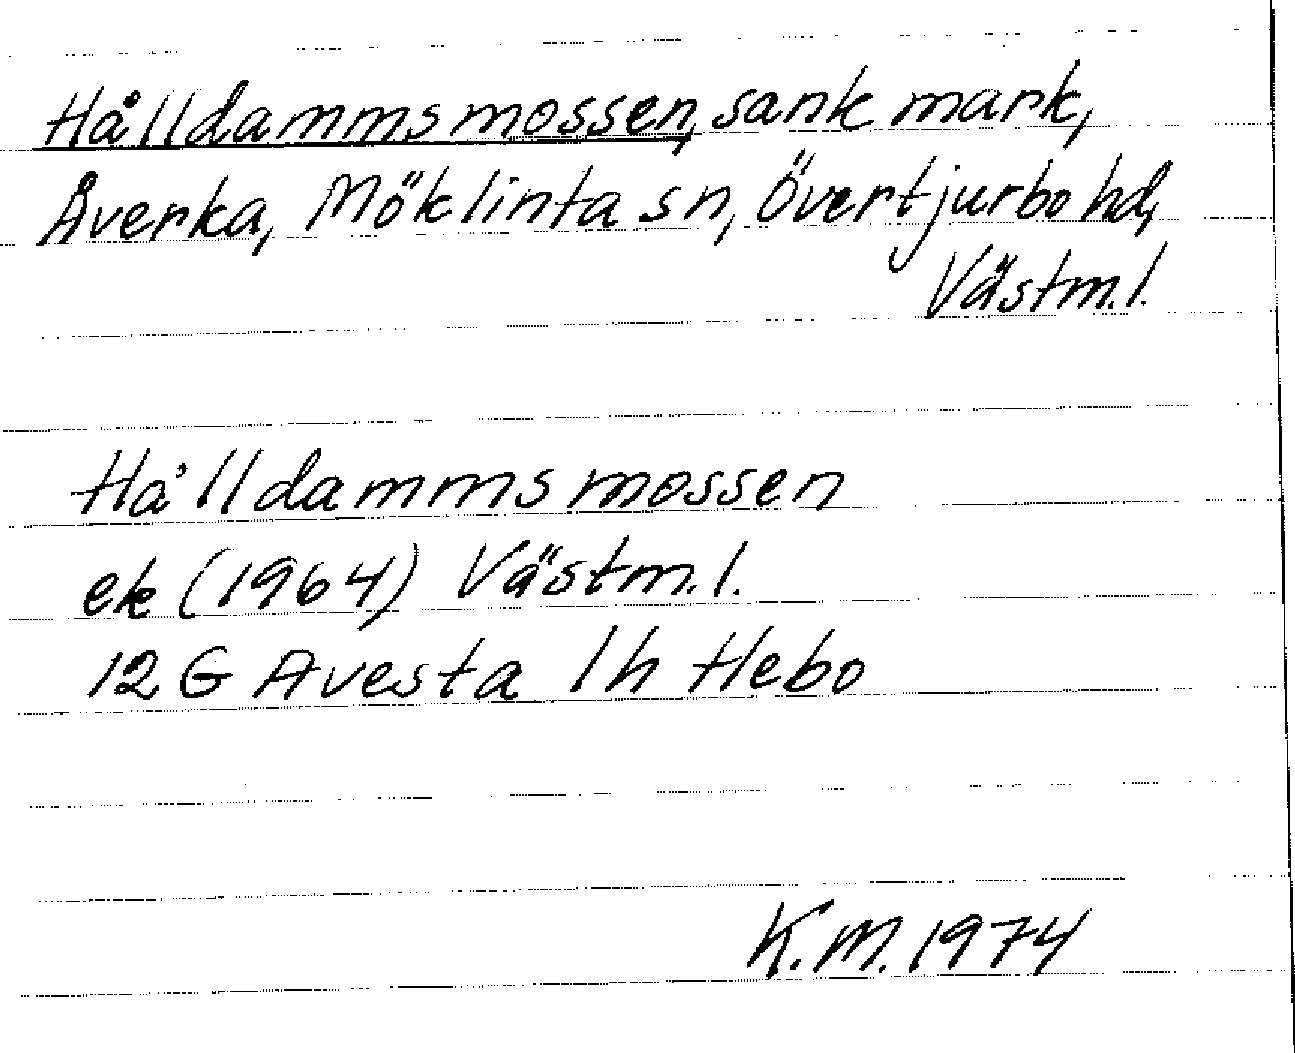 Hålldammsmossen, sank mark,
Åverka, Möklinta sn, Övertjurbo hd,
Västm.l.
Hålldammsmossen
ek (1964) Västm.l.
12 G Avesta 1h Hebo
K.M. 1974